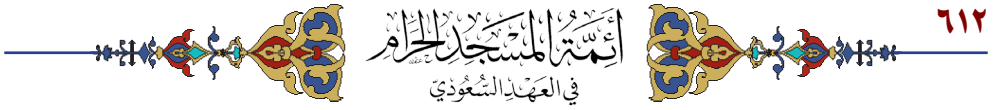 ٦١٢
أَئِمَّةُ المَسْجِدِ الحَرَامِ
فِي العَهْدِ السُّعُودِيّ